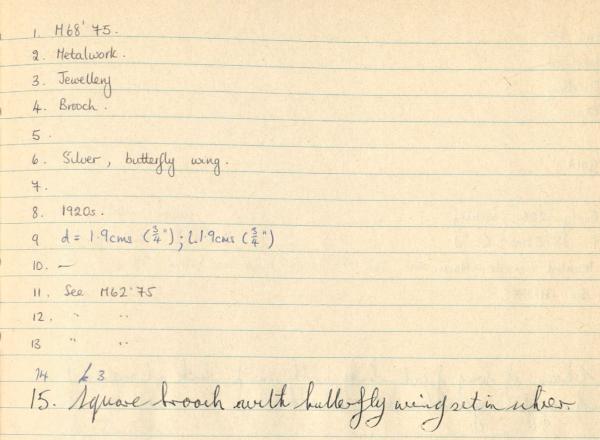 1. M68'75.
2. Metalwork.
3. Jewellery
4. Brooch.
5.
6. Silver, butterfly wing.
7.
8. 1920s.
9 d = 1.9cms (3/4"); L1.9cms (3/4")
10. —
11. See M62'75
12. " "
13 " "
14 £3
15. Square brooch with butterfly wing set in silver.